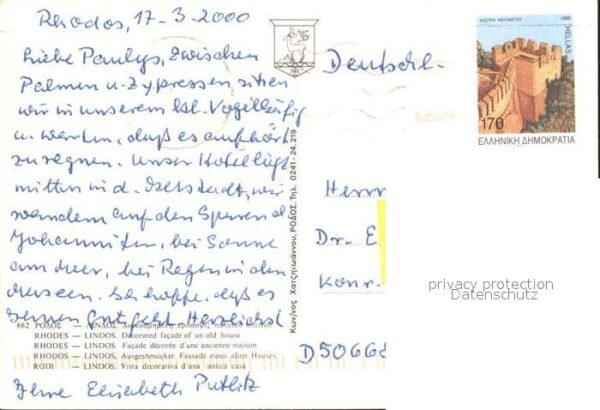 Rhodos, 17-3-2000
Liebe Paulys, zwischen
Palmen u. Zypressen sitzen
wir in unserem kl. Vogelkäfig
u. warten, daß es aufhört
zu regnen. Unser Hotel liegt
mitten in d. Altstadt, wir
wandern auf den Spuren d.
Johanniter, bei Sonne
am Meer, bei Regen in den
Museen. Ich hoffe, daß es
Ihnen gut geht. Herzlichst
862 ΡΟΔΟΣ — ΛΙΝΔΟΣ.
RHODES — LINDOS. Decorated façade of an old house
RHODES — LINDOS. Façade décorée d'une ancienne maison
RHODOS — LINDOS. Ausgeschmückte Fassade eines alten Hauses
RODI — LINDOS. Vista decorativa d'una antica casa
Ihre Elisabeth Putlitz
Κων/νος Χατζηιωάννου, ΡΟΔΟΣ, Τηλ. 0241-24.219
Deutschl.
ΚΑΣΤΡΟ ΝΑΥΠΑΚΤΟΥ 1998
HELLAS
170
ΕΛΛΗΝΙΚΗ ΔΗΜΟΚΡΑΤΙΑ
Herrn
Dr. E
Konr.
privacy protection
Datenschutz
D50668